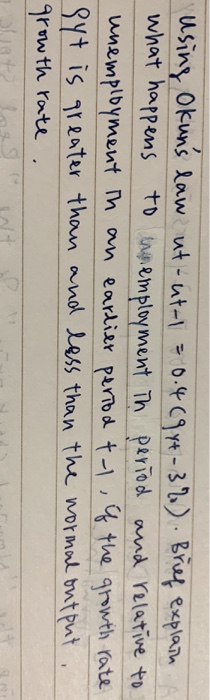 Using Okun's law ut-ut-1 = 0.4(gyt-3%). Brief explain
what happens to unemployment in period and relative to
unemployment in an earlier period t-1, if the growth rate
gyt is greater than and less than the normal output
growth rate.